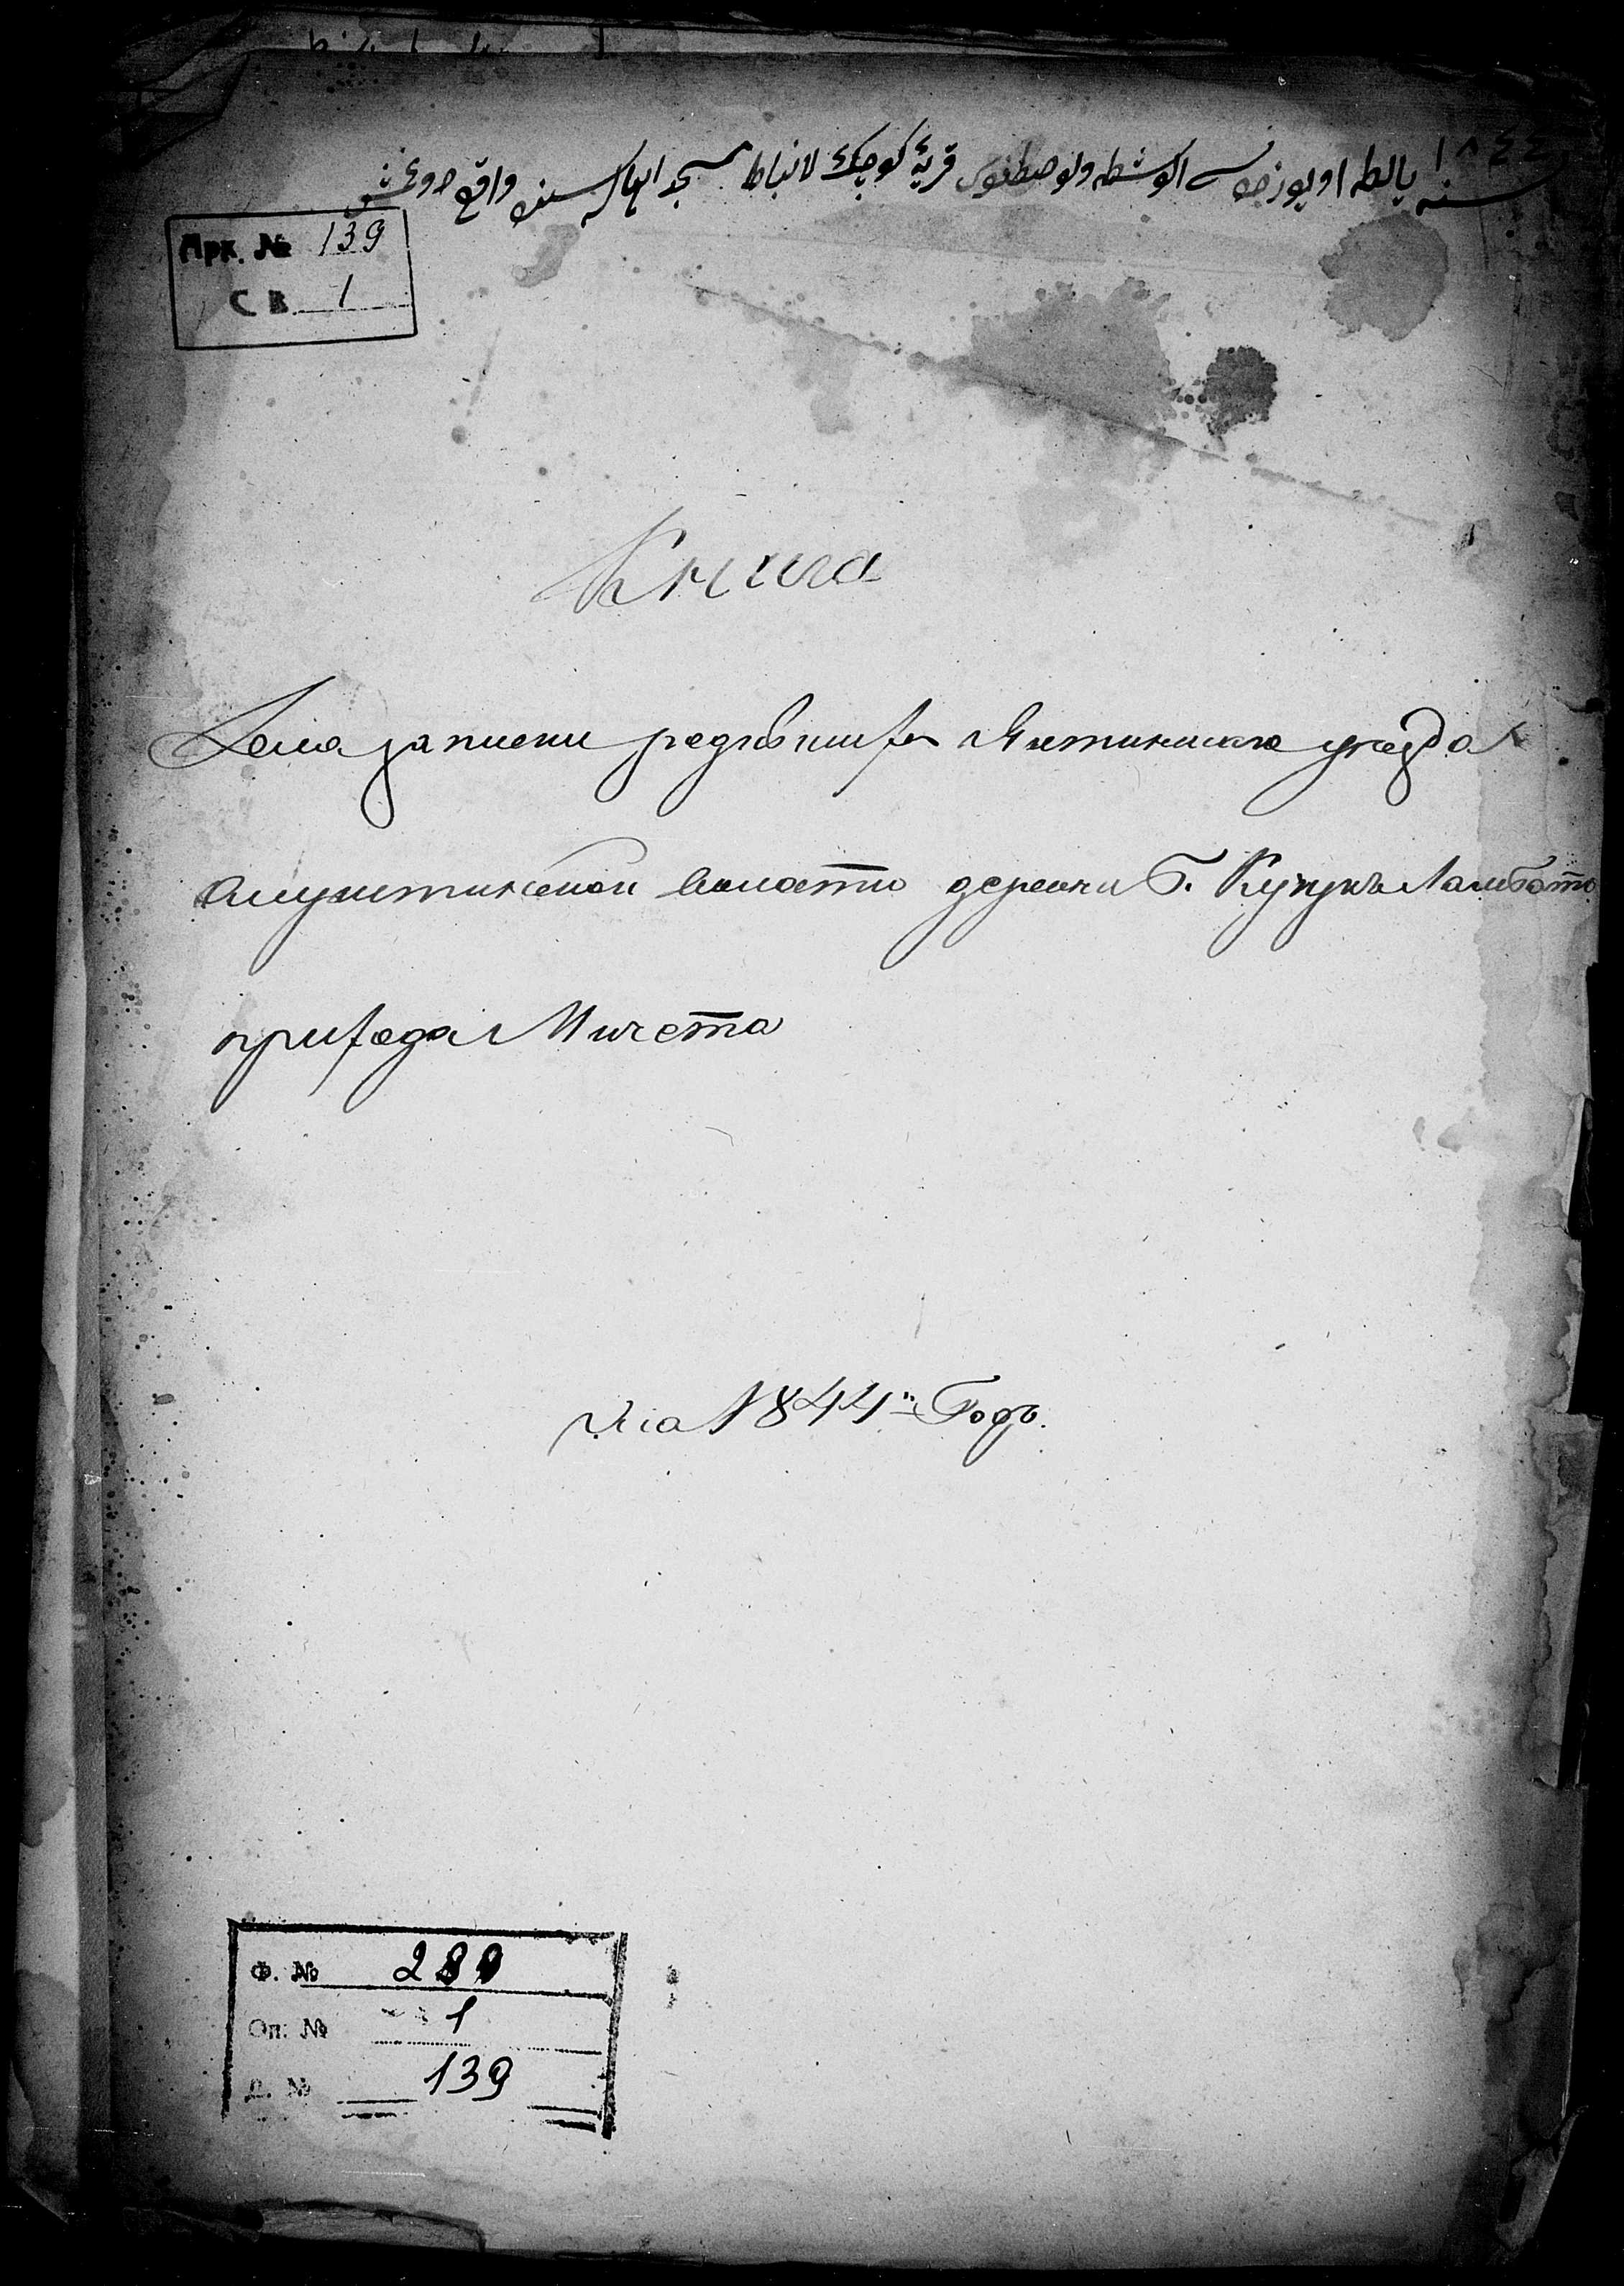 سنه ١٨٤٤ يالطه اويوزنده الوشطه ولوصطنوى قريۀ كوچك لانباط مسجد اهاليسنده واقع دوغمش
Арх. № 139
С В. 1
Книга
Для записки родившихся Ялтинскаго уезда
Алуштинской волости деревни Б. Кучукъ Ламбата
прихода Мичета
На 1844й Годъ.
Ф. № 289
Оп. № 1
Д. № 139